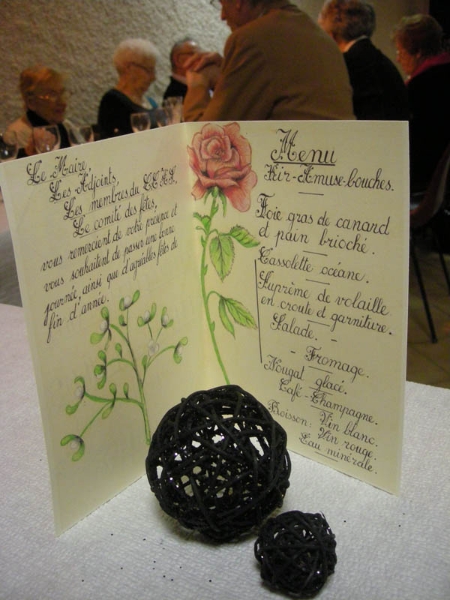 Le Maire,
Les Adjoints,
Les membres du C.C.A.S.
Le comité des fêtes,
vous remercient de votre présence et
vous souhaitent de passer une bonne
journée, ainsi que d'agréables fêtes de
fin d'année.
Menu
Kir-Amuse-bouches.
Foie gras de canard
et pain brioché.
Cassolette océane.
Suprême de volaille
en croute et garniture.
Salade. -
- Fromage.
Nougat glacé.
Café - Champagne.
Boisson: Vin blanc.
Vin rouge.
Eau minérale.